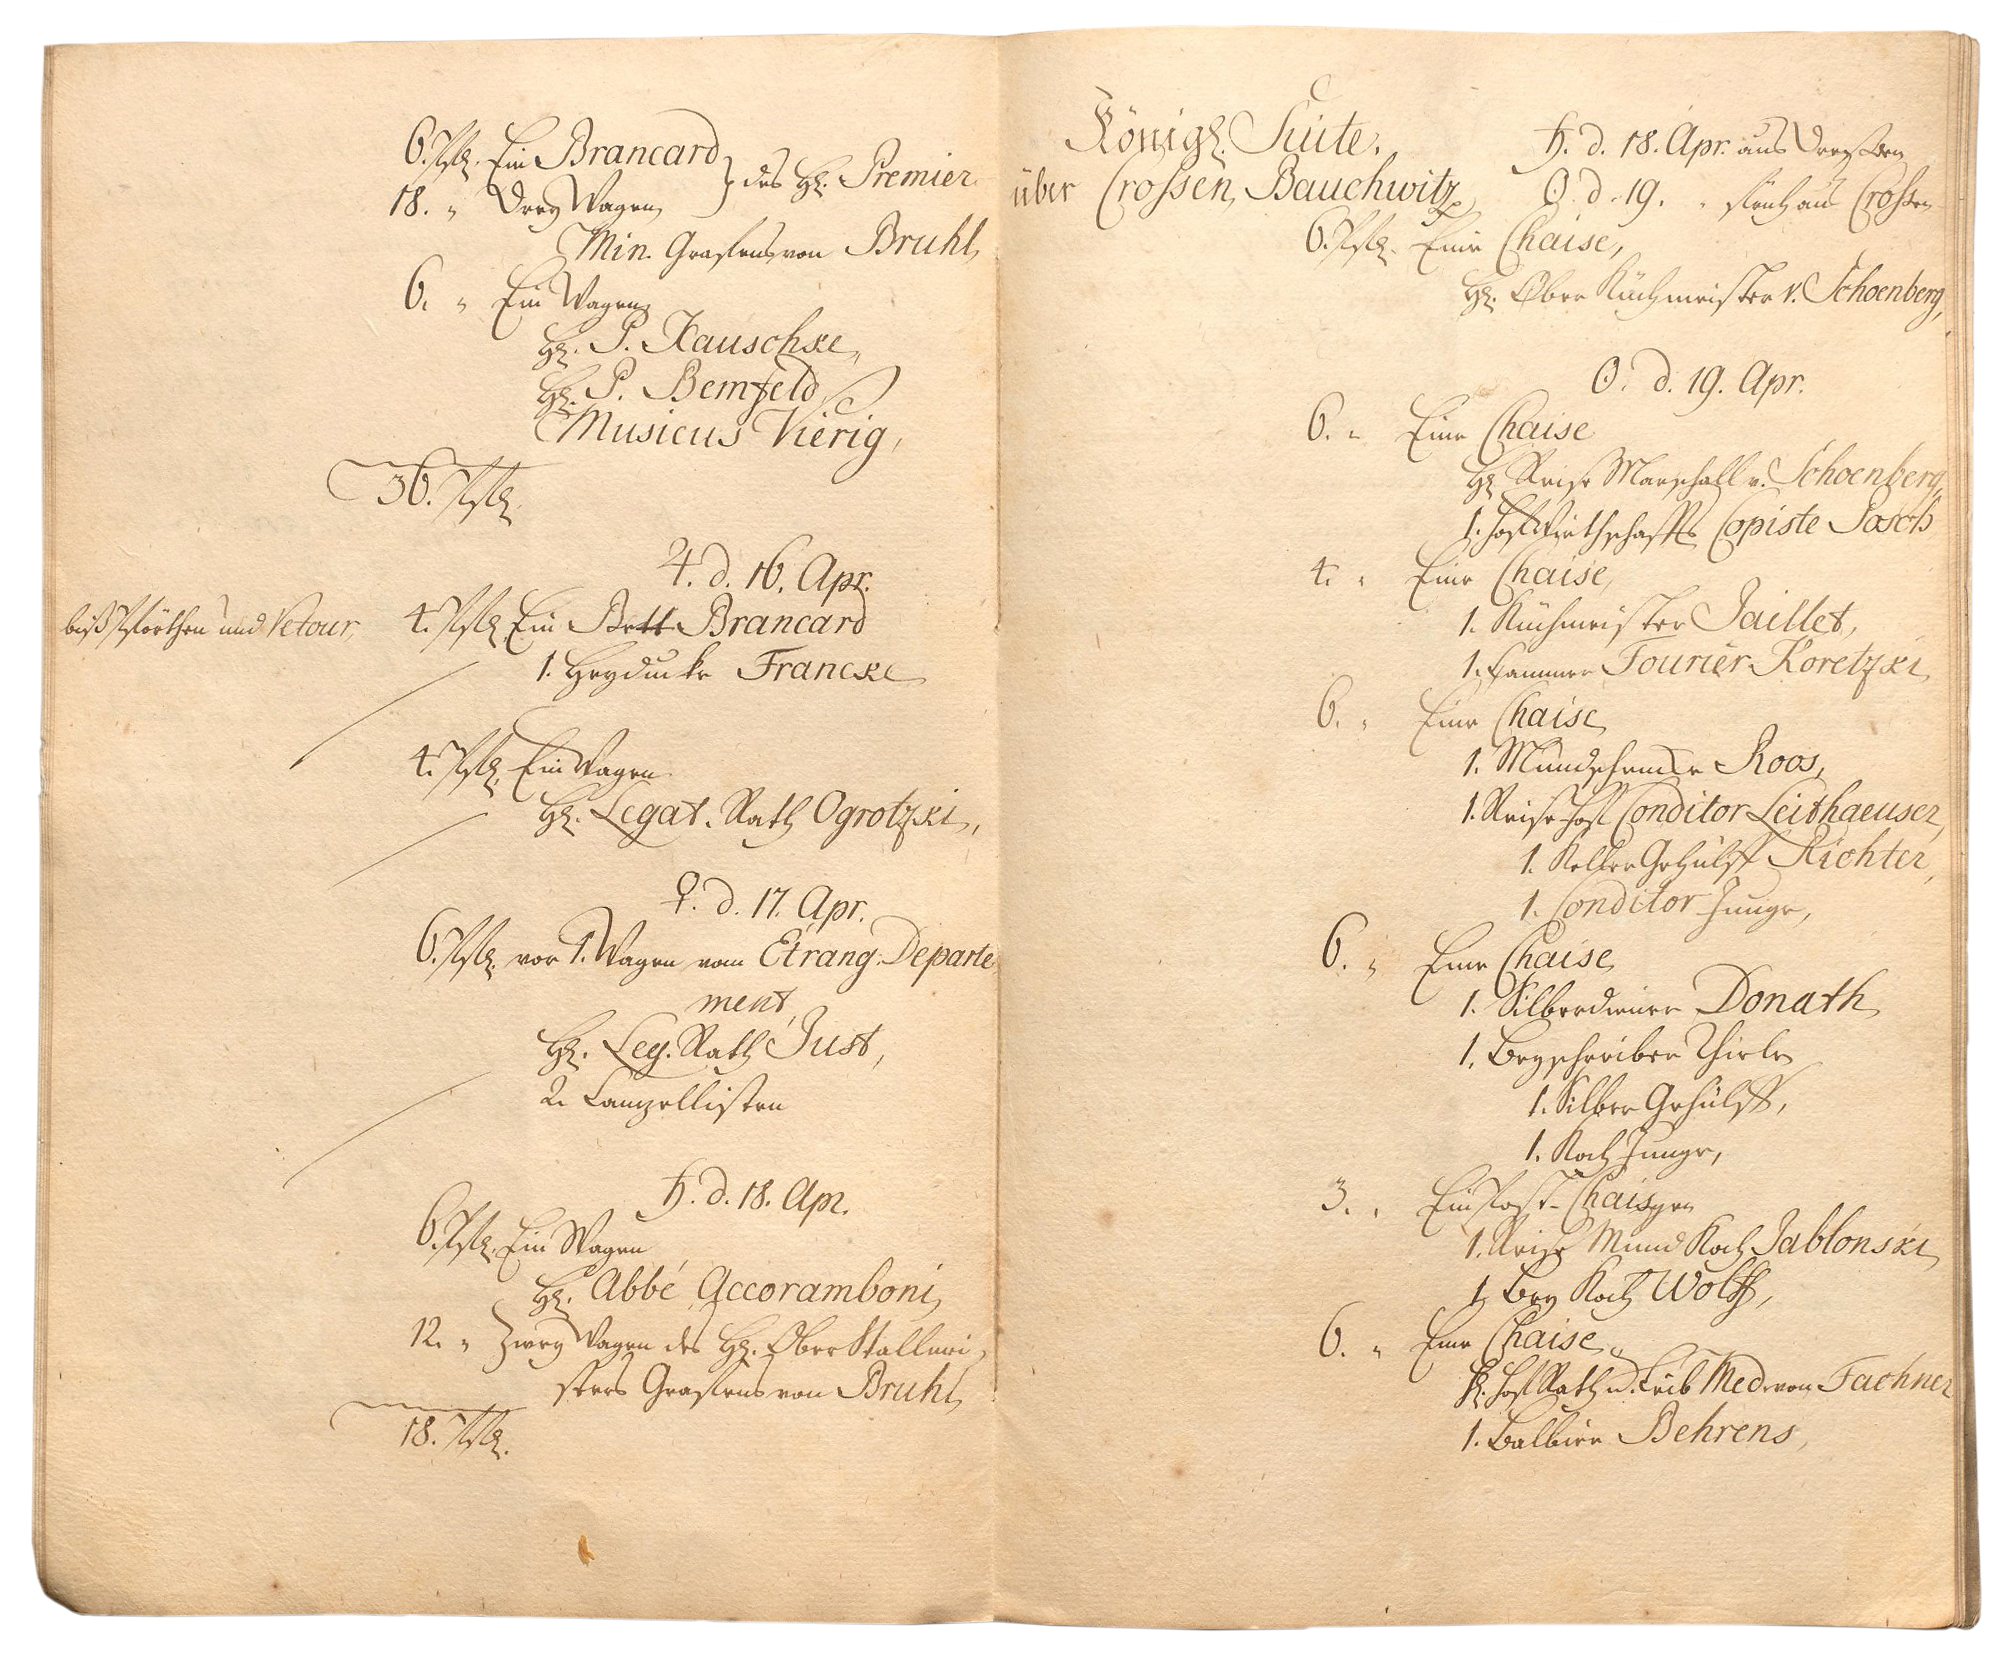 6. Pfd. Ein Brancard
18. " Drey Wagen } des H. Premier
Min. Grafens von Bruhl,
6. " Ein Wagen
H. P. Kauschke,
H. P. Bernfeld,
Musicus Vierig,
36. Pfd.
♃. d. 16. Apr.
biß Pförthen und Retour,
4. Pfd. Ein Bett Brancard
1. Heyducke Francke
4. Pfd. Ein Wagen
H. Legat. Rath Ogrotzki,
♀. d. 17. Apr.
6. Pfd. vor 1. Wagen vom Etrang. Departe
ment,
H. Leg. Rath Just,
2. Canzellisten
♄. d. 18. Apr.
6. Pfd. Ein Wagen
H. Abbé Accoramboni,
12. " Zwey Wagen des H. Ober Stallmei
sters Grafens von Bruhl,
18. Pfd.
Königl. Suite,
über Crossen, Bauchwitz,
♄. d. 18. Apr. aus Dreßden
☉. d. 19. " früh aus Crossen
6. Pfd. Eine Chaise,
H. Ober Küchmeister v. Schoenberg,
☉. d. 19. Apr.
6. " Eine Chaise
H. Reise Marschall v. Schoenberg,
1. Hof Wirthschaffts Copiste Pasch
4. " Eine Chaise,
1. Küchmeister Jaillet,
1. Cammer Fourier Koretzki,
6. " Eine Chaise,
1. Mundschencke Roos,
1. Reise Hof Conditor Leithaeuser,
1. Keller Gehülff Richter,
1. Conditor Junge,
6. " Eine Chaise,
1. Silberdiener Donath,
1. Beyschreiber Thiele
1. Silber Gehülff,
1. Koch Junge,
3. " Ein Post-Chaisgen
1. Reise Mund Koch Jablonski,
1. Bey Koch Wolff,
6. " Eine Chaise,
H. Hof Rath u. Leib Med. von Fachner
1. Balbier Behrens,